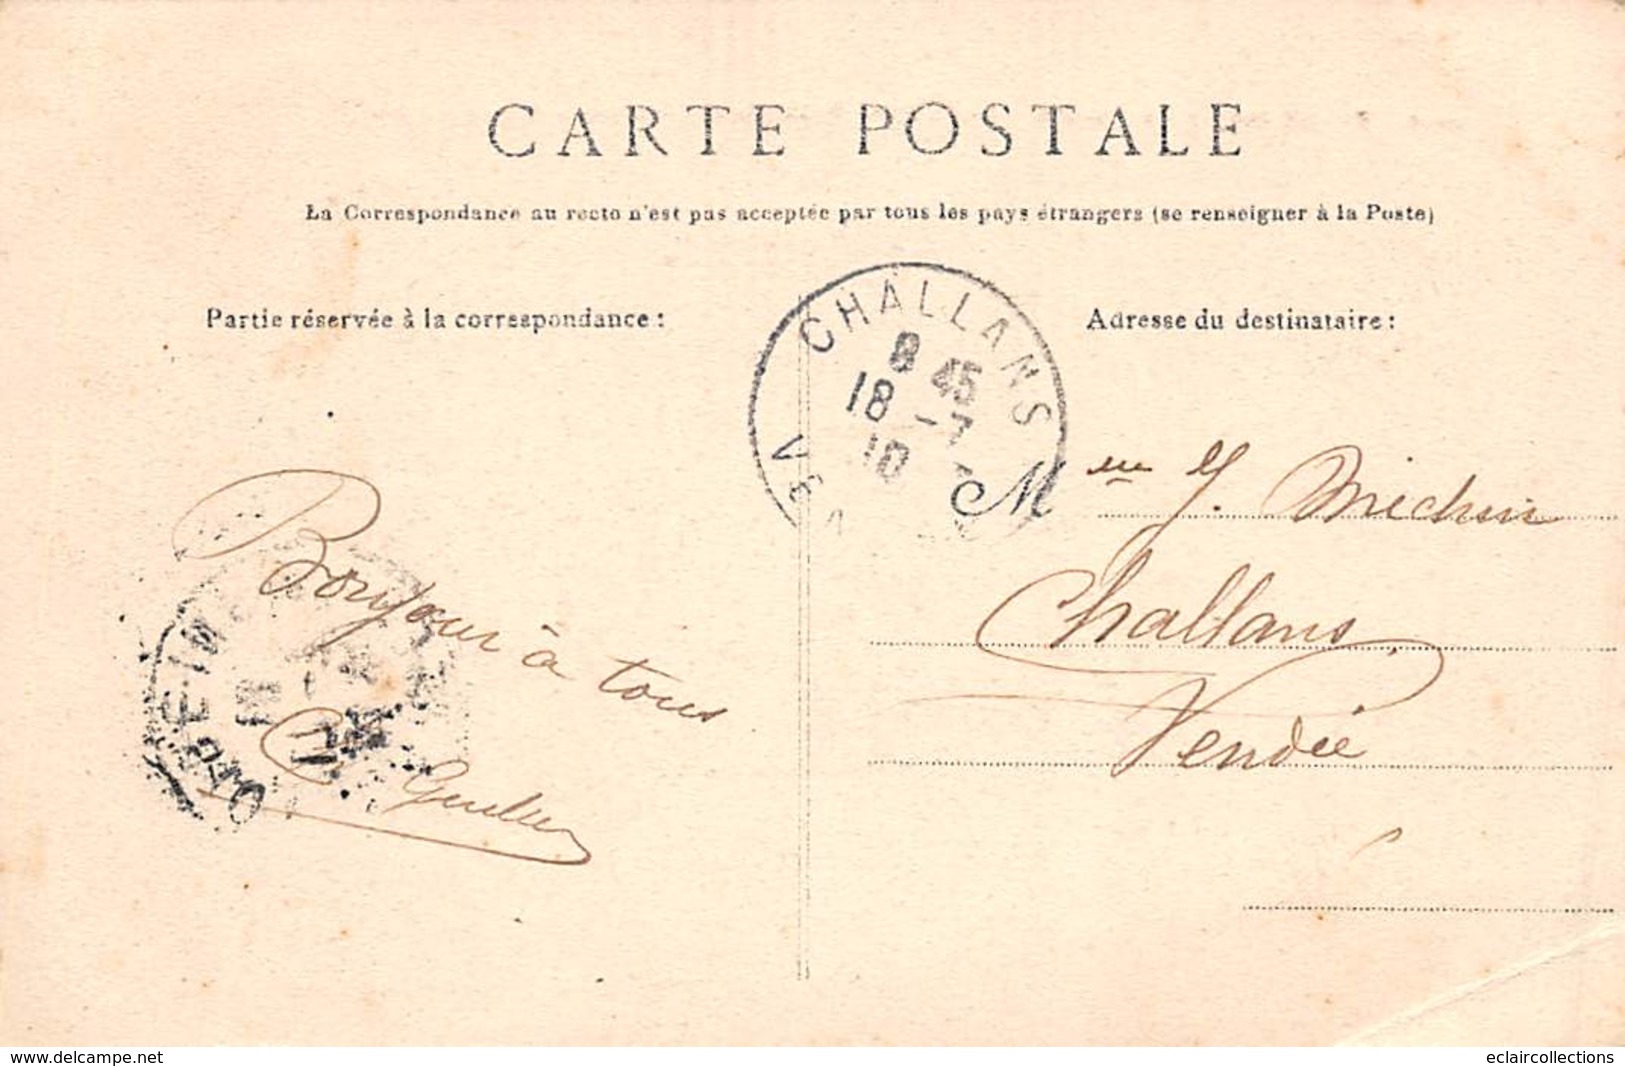 CARTE POSTALE
La Correspondance au recto n'est pas acceptée par tous les pays étrangers (se renseigner à la Poste)
Partie réservée à la correspondance :
Adresse du destinataire :
CHALLANS
8 45
18 -7
10
VE
M
Challans
Vendée
Bonjour à tous
www.delcampe.net
eclaircollections